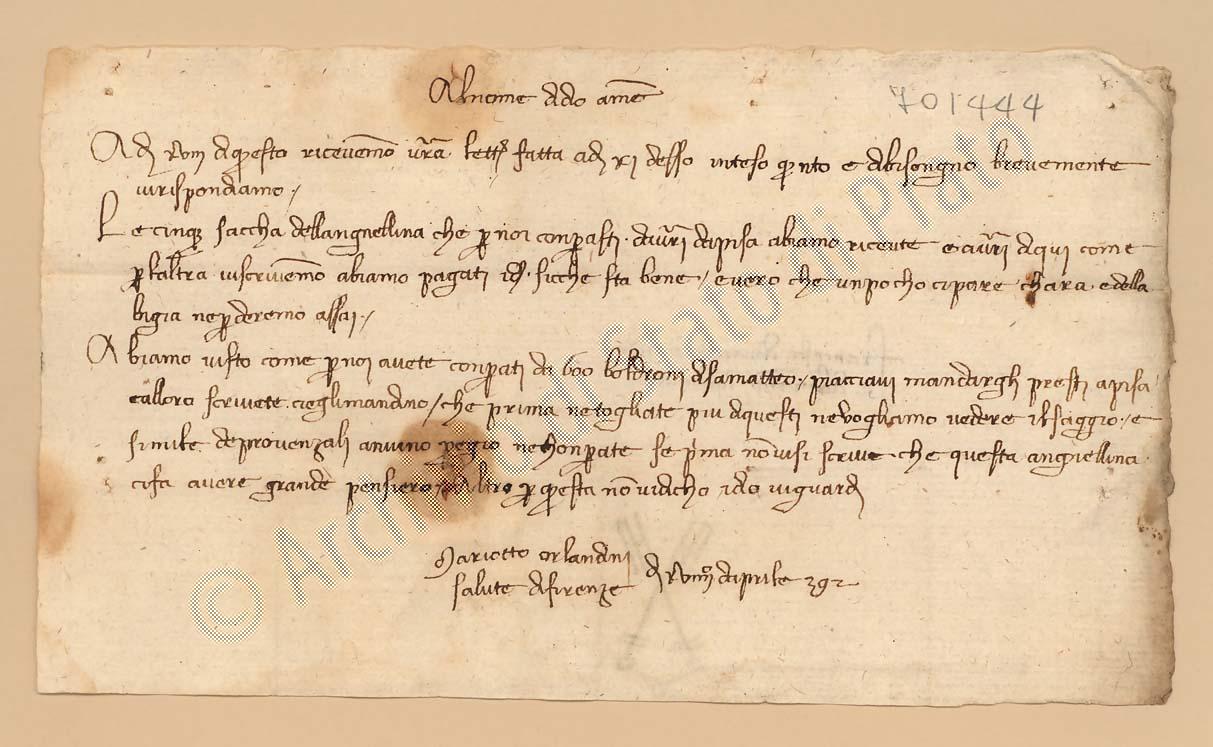 Al nome d dio ame
701444
A dj xviij di questo ricevemo vra lettr fatta adj xj desso inteso qnto e dbisongno brevemente
virispondiamo /
Le cinque saccha dellangnellina che p noi conprasti . davri dapisa abiamo ricevute e avri di qui come
p laltra viscrivemo abiamo pagati sicche sta bene / e vero che unpocho cipare chara e della
bigia neperderemo assai /
Abiamo visto come p noi avete conprati da 600 boldroni dsamatteo / piacciavi mandargli presti apisa
e alloro scrivete cieglimandino / che prima netogliate piu di questi nevogliamo vedere ilsaggio / e
simile deprovenzali peggio neconprate se prima no visi scrive che questa angnellina
cifa avere grande pensiero altro p questa no vidicho ido viguardi
Mariotto orlandini
salute difirenze
dj xviiij daprile 392
© Archivio di Stato di Prato